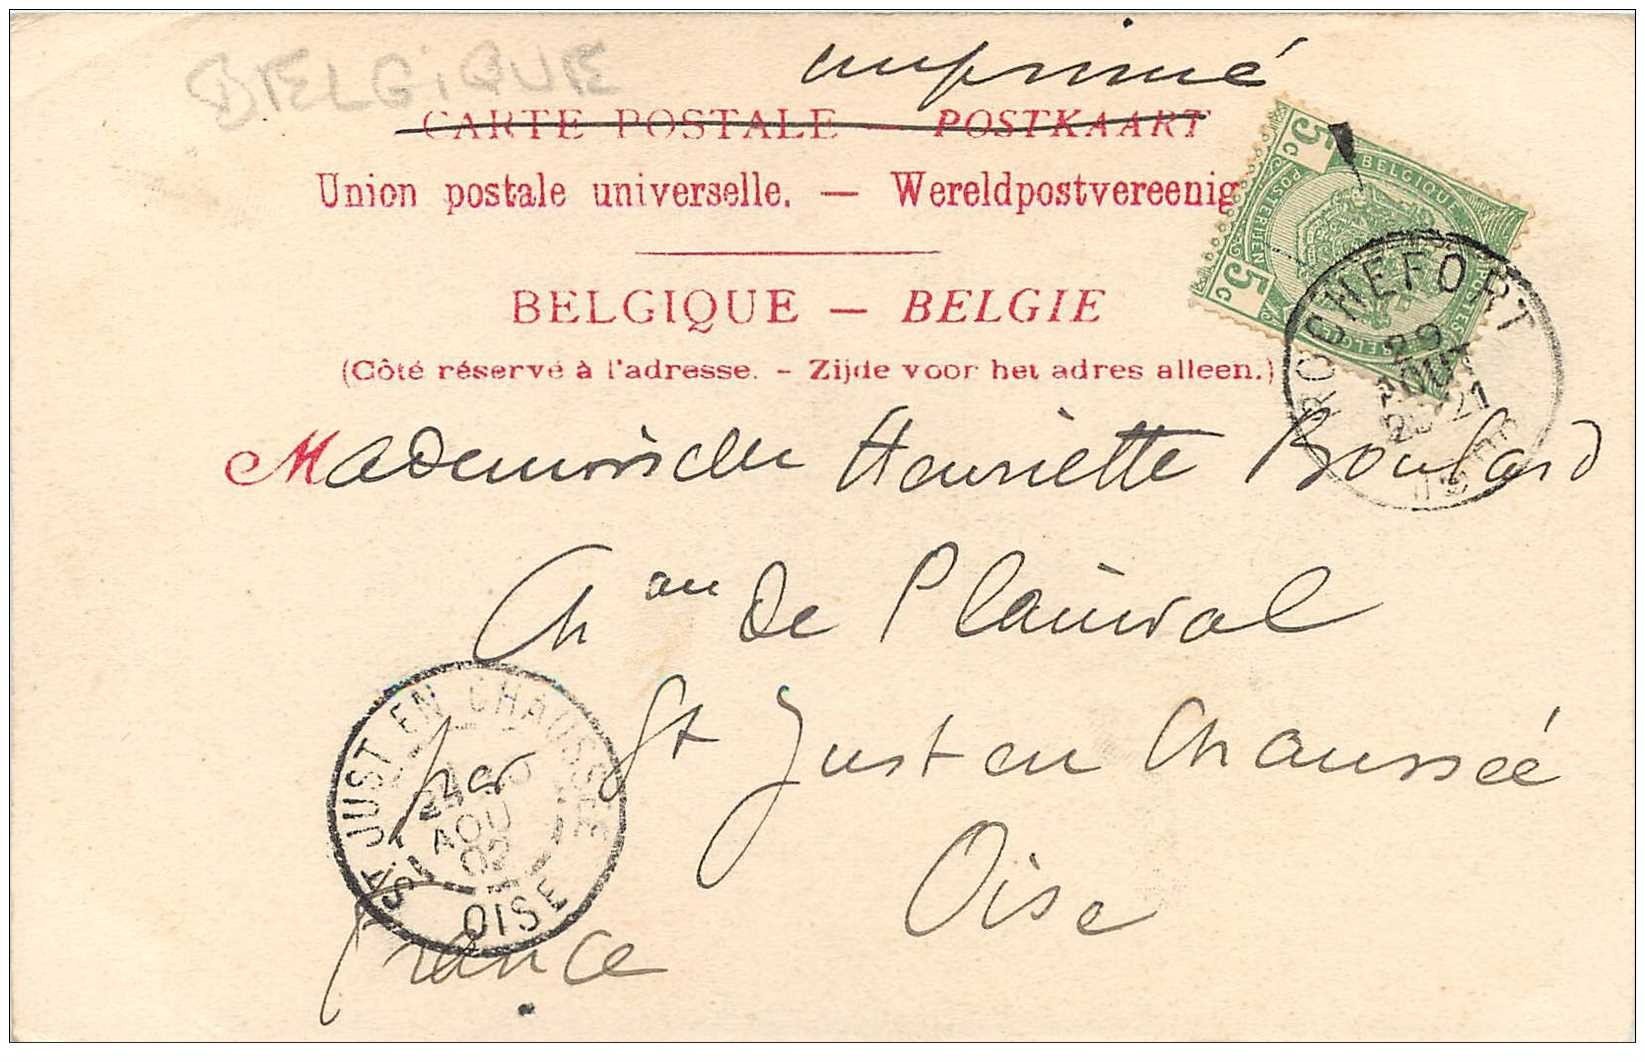 BELGIQUE
imprimé
CARTE POSTALE — POSTKAART
Union postale universelle. — Wereldpostvereenig
BELGIQUE — BELGIE
(Côté réservé à l'adresse. - Zijde voor het adres alleen.)
5 c BELGIQUE POSTERIJEN POSTES BELGIE 5 c
ROCHEFORT
29
AOUT
21
Mademoiselle Henriette Boulard
Ch au de Plainval
par St Just en Chaussée
Oise
France
ST JUST EN CHAUSSEE
AOU
02
OISE